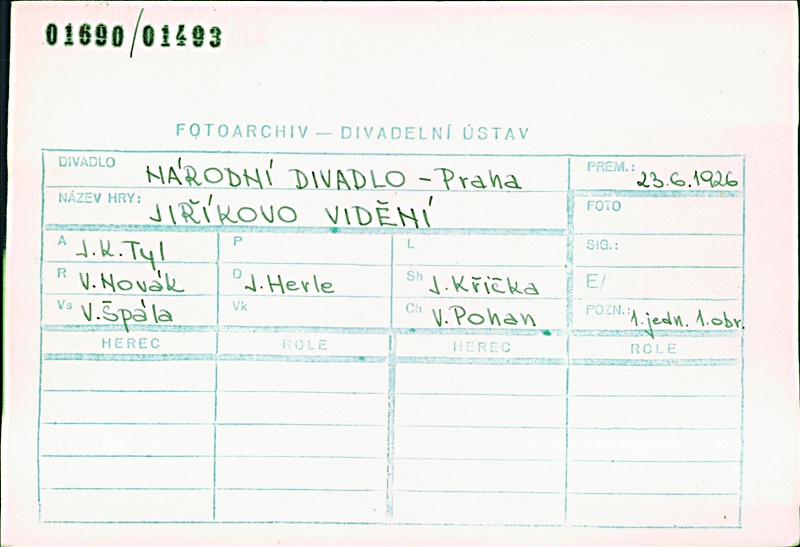 01690/01493
FOTOARCHIV — DIVADELNÍ ÚSTAV
DIVADLO NÁRODNÍ DIVADLO - Praha PREM.: 23.6.1926
NÁZEV HRY: JIŘÍKOVO VIDĚNÍ FOTO
A J.K.Tyl P L SIG.:
R V.Novák D J.Herle Sh J.Křička E/
Vs V.Špála Vk Ch V.Pohan POZN.: 1.jedn. 1.obr.
HEREC ROLE HEREC ROLE